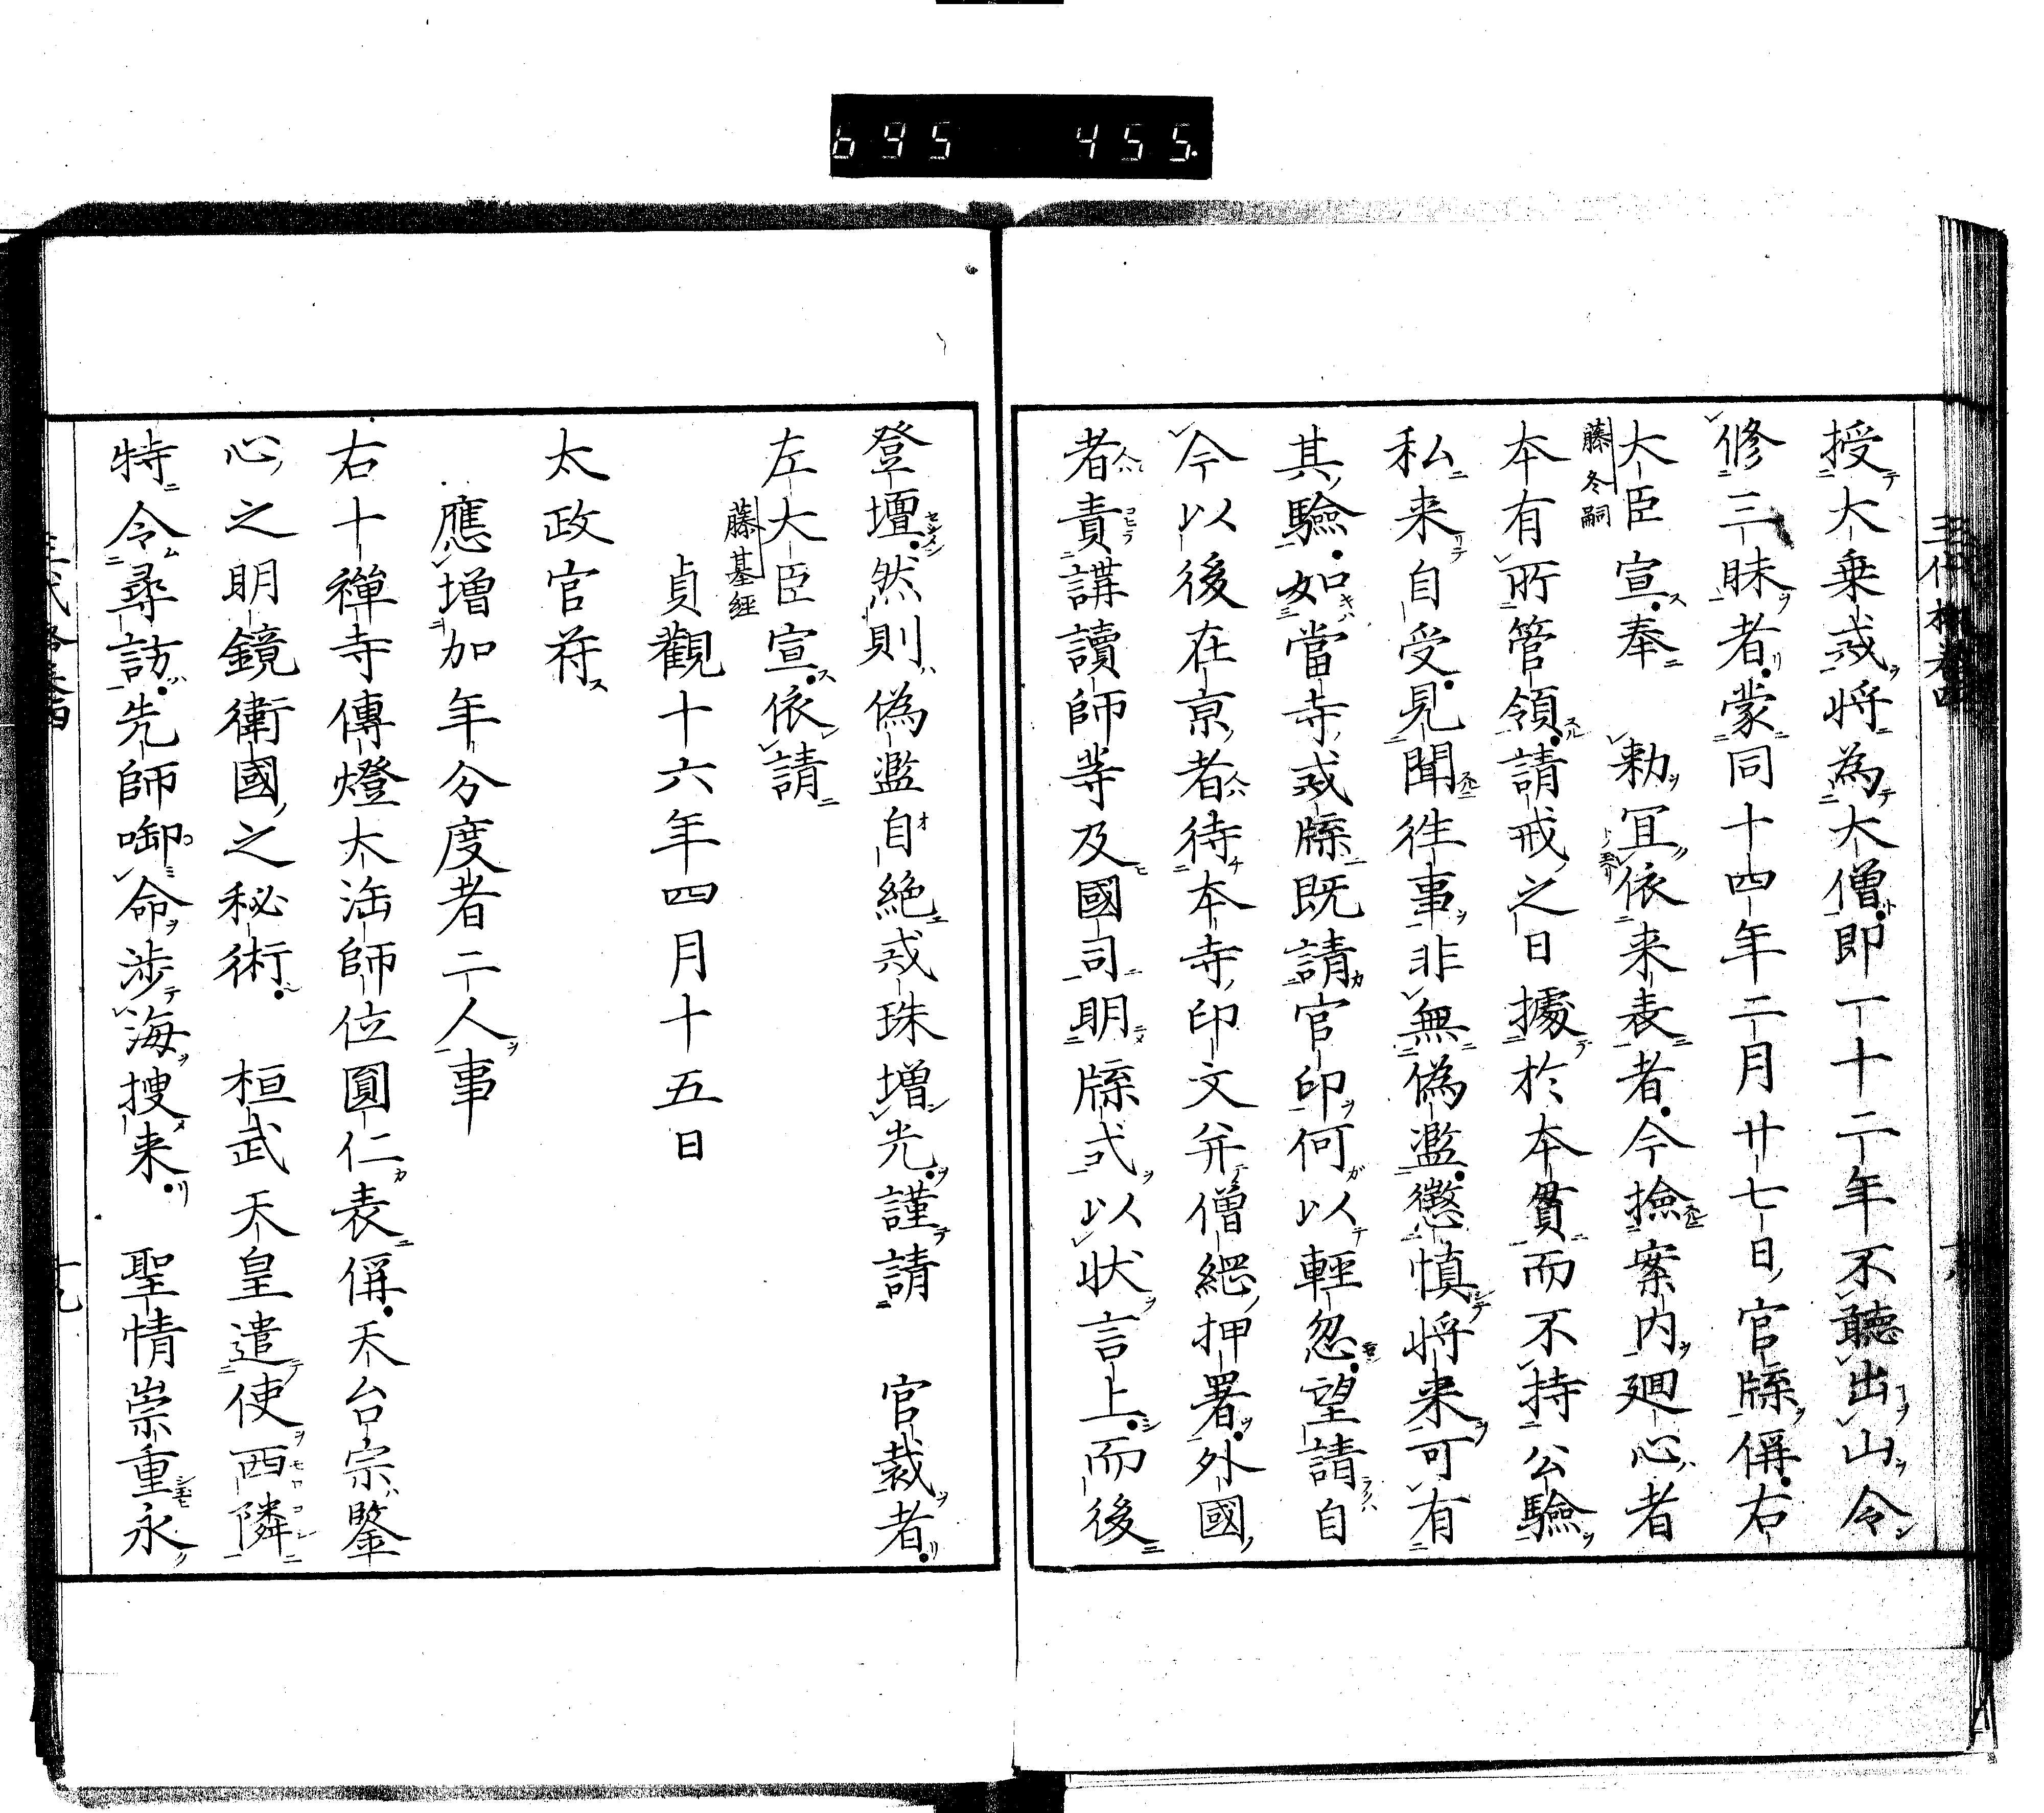 695 455.
授大乗戒将為大僧即一十二年不聽出山令
修三昧者蒙同十四年二月廿七日官牒偁右
大臣宣奉 勅冝依来表者今撿案内廻心者
藤冬嗣
本有所管領請戒之日據於本貫而不持公驗
私来自受見聞徃事非無偽濫懲慎将来可有
其驗如當寺戒牒既請官印何以輕忽望請自
今以後在京者待本寺印文并僧綱押署外國
者責講讀師等及國司明牒弍以状言上而後
登壇然則偽濫自絶戒珠増光謹請 官裁者
左大臣宣依請
藤基経
貞觀十六年四月十五日
太政官符
應増加年分度者二人事
右十禪寺傳燈大法師位圓仁表偁天台宗鑒
心之明鏡衛國之秘術 桓武天皇遣使西隣
特令尋訪先師啣命渉海捜来 聖情崇重永